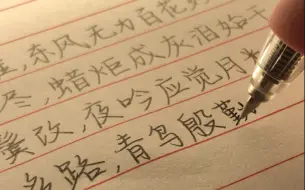 ，东风无力百花
尽，蜡炬成灰泪始干
鬓改，夜吟应觉月
多路，青鸟殷